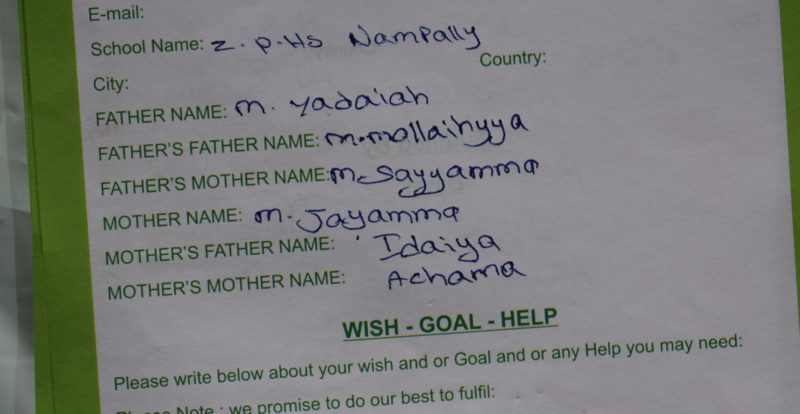 E-mail:
School Name: Z. P. Hs Nampally
City: Country:
FATHER NAME: m. yadaiah
FATHER'S FATHER NAME: m. mollaihyya
FATHER'S MOTHER NAME: m. Sayyamma
MOTHER NAME: m. Jayamma
MOTHER'S FATHER NAME: Idaiya
MOTHER'S MOTHER NAME: Achama
WISH - GOAL - HELP
Please write below about your wish and or Goal and or any Help you may need:
Please Note : we promise to do our best to fulfil: